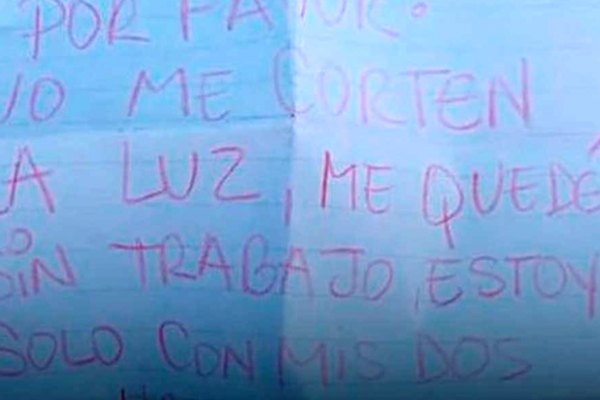 POR FAVOR.
NO ME CORTEN
LA LUZ, ME QUEDÉ
SIN TRABAJO, ESTOY
SOLO CON MIS DOS